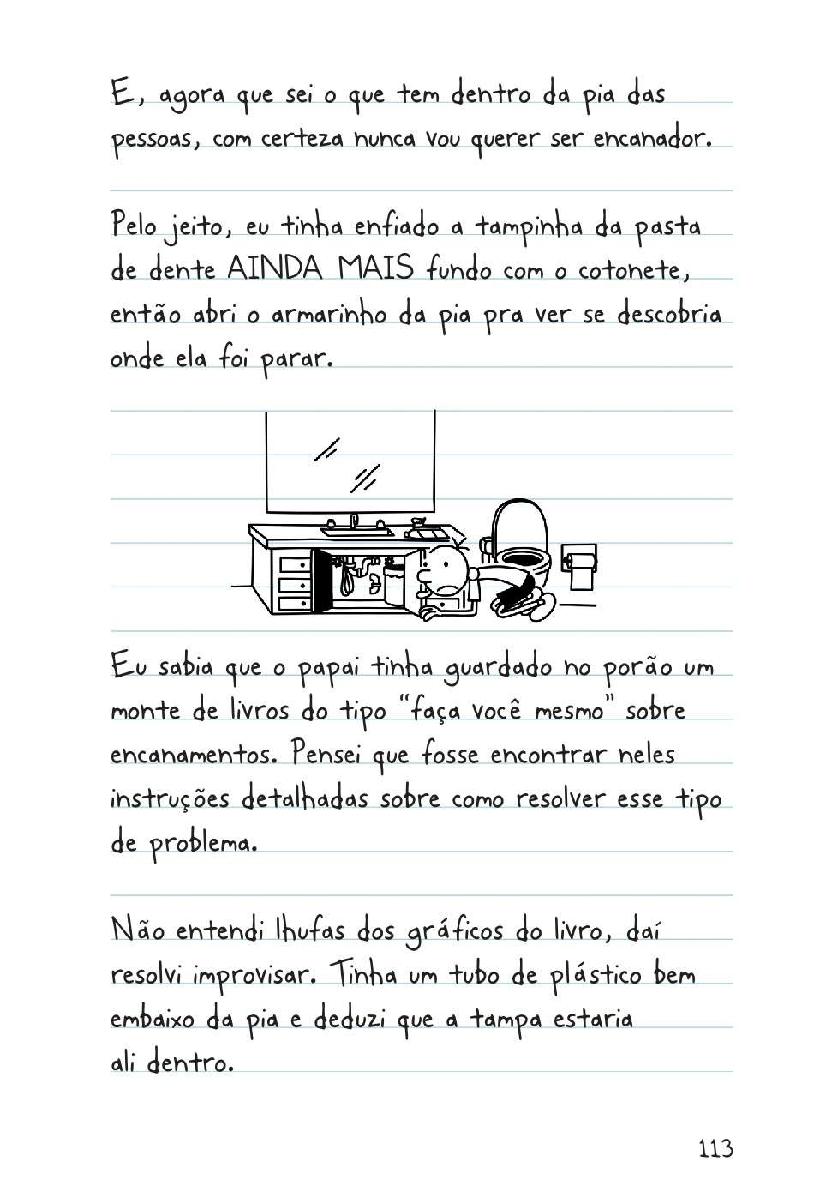 E, agora que sei o que tem dentro da pia das
pessoas, com certeza nunca vou querer ser encanador.
Pelo jeito, eu tinha enfiado a tampinha da pasta
de dente AINDA MAIS fundo com o cotonete,
então abri o armarinho da pia pra ver se descobria
onde ela foi parar.
Eu sabia que o papai tinha guardado no porão um
monte de livros do tipo “faça você mesmo” sobre
encanamentos. Pensei que fosse encontrar neles
instruções detalhadas sobre como resolver esse tipo
de problema.
Não entendi lhufas dos gráficos do livro, daí
resolvi improvisar. Tinha um tubo de plástico bem
embaixo da pia e deduzi que a tampa estaria
ali dentro.
113